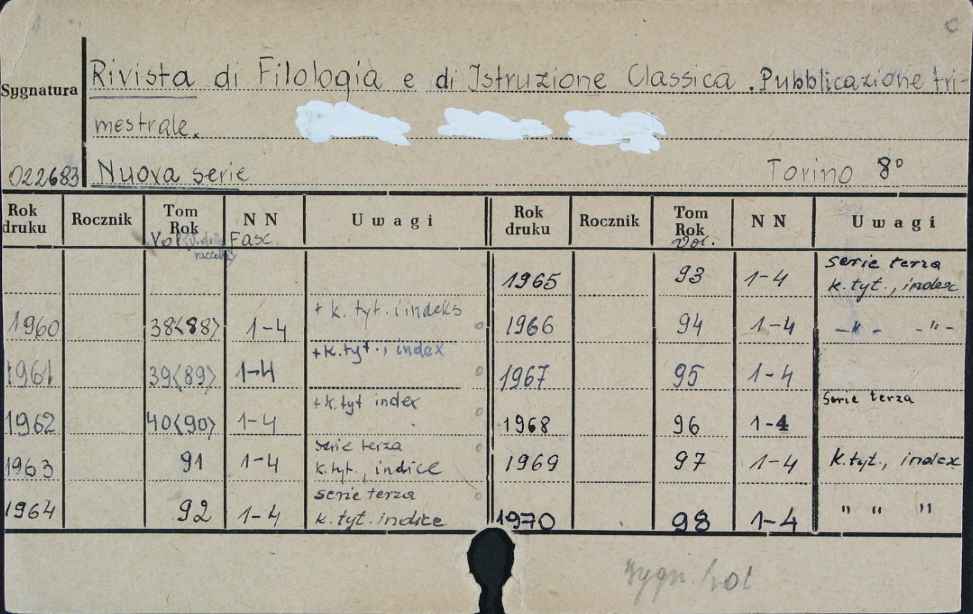 Sygnatura
Rivista di Filologia e di Istruzione Classica . Pubblicazione tri-
mestrale.
022683 Nuova serie Torino 8°
Rok druku Rocznik Tom Rok Vol. N N Fasc. Uwagi
1960 38<88> 1-4 + k. tyt. i indeks
1961 39<89> 1-4 + k. tyt., index
1962 40<90> 1-4 + k. tyt index
1963 91 1-4 serie terza
k. tyt., indice
1964 92 1-4 serie terza
k. tyt. indice
Rok druku Rocznik Tom Rok Vol. N N Uwagi
1965 93 1-4 serie terza
k. tyt., index
1966 94 1-4 -"- -"-
1967 95 1-4
1968 96 1-4 serie terza
1969 97 1-4 k. tyt., index
1970 98 1-4 " " "